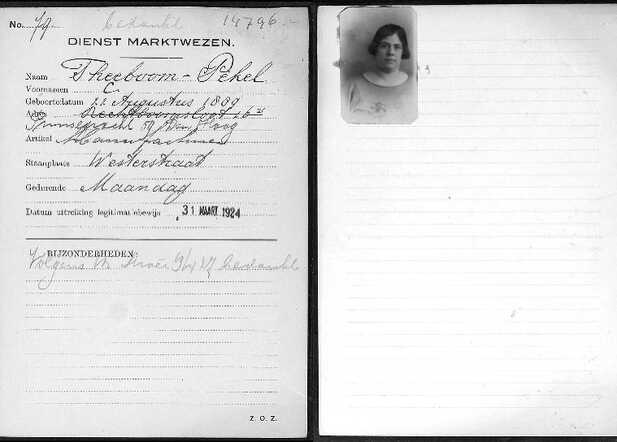 No. 79 bedankt 14796
DIENST MARKTWEZEN.
Naam Theeboom-Pekel
Voornamen C.
Geboortedatum 22 Augustus 1889
Adres Rechtboomsloot 26
50 Den Haag
Artikel Manufacturen
Staanplaats Westerstraat
Gedurende Maandag
Datum uitreiking legitimatiebewijs 31 MAART 1924
BIJZONDERHEDEN
Volgens bedankt
Z. O. Z.